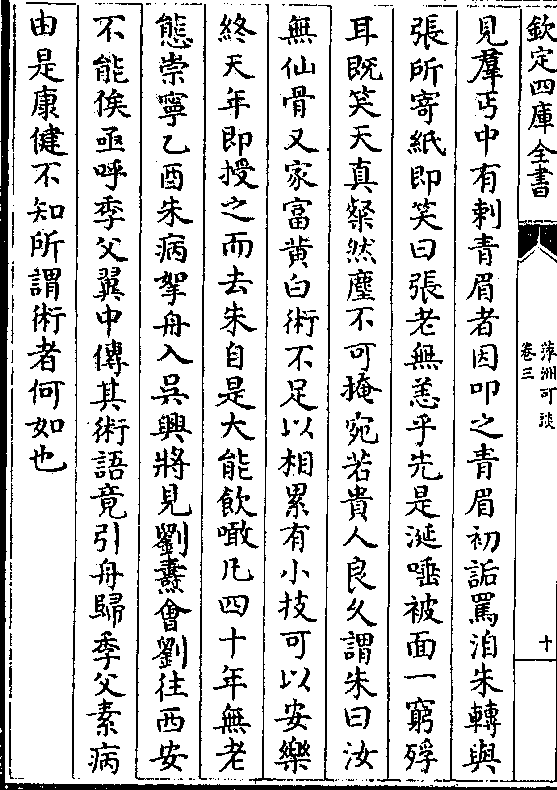 欽定四庫全書
萍洲可談
卷三
十
見羣丐中有刺青眉者因叩之青眉初詬罵洎朱轉與
張所寄紙即笑曰張老無恙乎先是涎唾被面一窮殍
耳既笑天真粲然塵不可掩宛若貴人良久謂朱曰汝
無仙骨又家富黄白術不足以相累有小技可以安樂
終天年即授之而去朱自是大能飲噉凡四十年無老
態崇寧乙酉朱病拏舟入吳興將見劉燾會劉往西安
不能俟亟呼季父翼中傳其術語竟引舟歸季父素病
由是康健不知所謂術者何如也